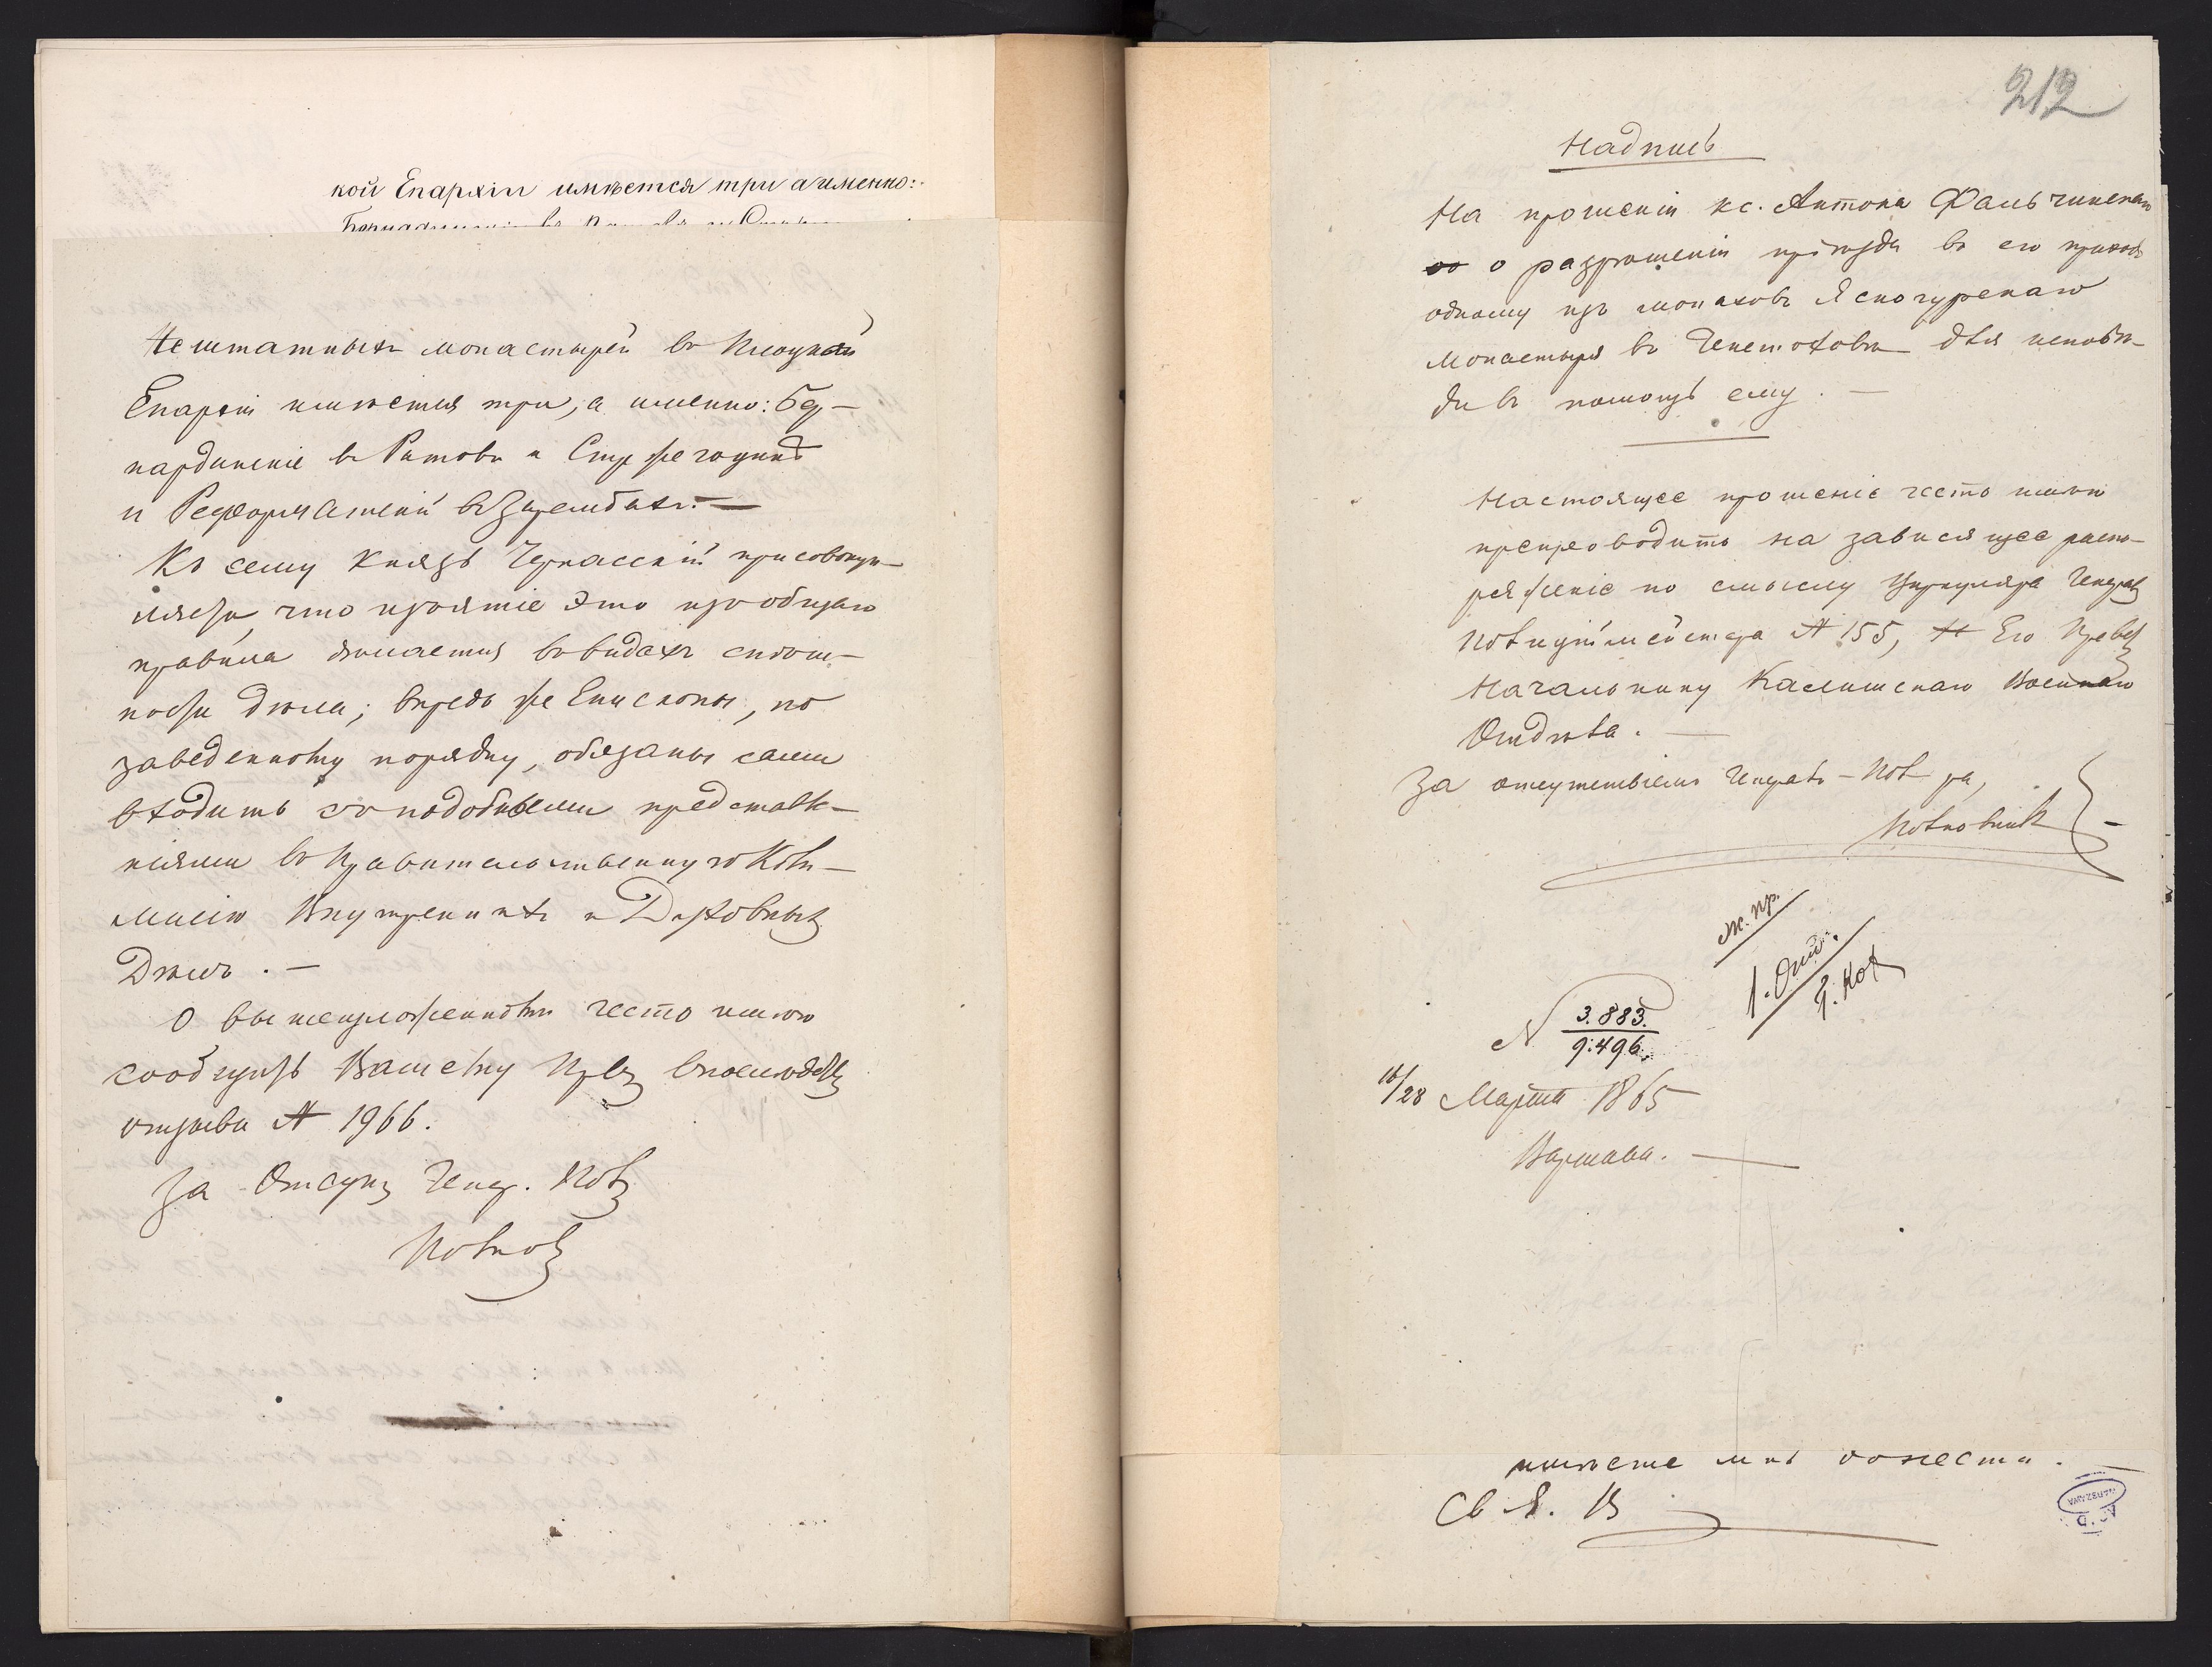 кой Епархіи имѣется три а именно:
Нештатныхъ монастырей въ Плоцкой
Епархіи имѣется три, а именно: Бер-
нардинскіе въ Ратовѣ и Стржегоцинѣ
и Реформатскій въ Зарембахъ.—
Къ сему Князь Черкасскій присовоку-
ляетъ, что изъятіе это изъ общаго
правила дѣлается въ видахъ спѣш-
ности дѣла; впредь же Епископы, по
заведенному порядку, обязаны сами
входить съ подобными представле-
ніями въ Правительственную Ком-
мисію Внутреннихъ и Духовныхъ
Дѣлъ.—
О вышеизложенномъ честь имѣю
сообщить Вашему Прев
отзыва № 1966.
За Отсут Генер. Пол
Полков
212
Надпись
На прошеніи кс. Антона Фальчинскаго
о разрѣшеніи пріѣзда въ его приходъ
одному изъ монаховъ Ясногурскаго
Монастыря въ Ченстоховѣ для исповѣ-
ди въ помощь ему.—
Настоящее прошеніе честь имѣю
препроводить на зависящее распо-
ряженіе по смыслу Циркуляра Генерал
Полицiймейстера № 155, Его Прев
Начальнику Калишскаго Военнаго
Отдѣла.—
За отсутствіемъ Генералъ-Пол ра,
Полковникъ
м. пр.
1. Отд.
№ 3.883.
9.496.
16/28 Марта 1865
Варшава.—
имѣете мнѣ донести.—